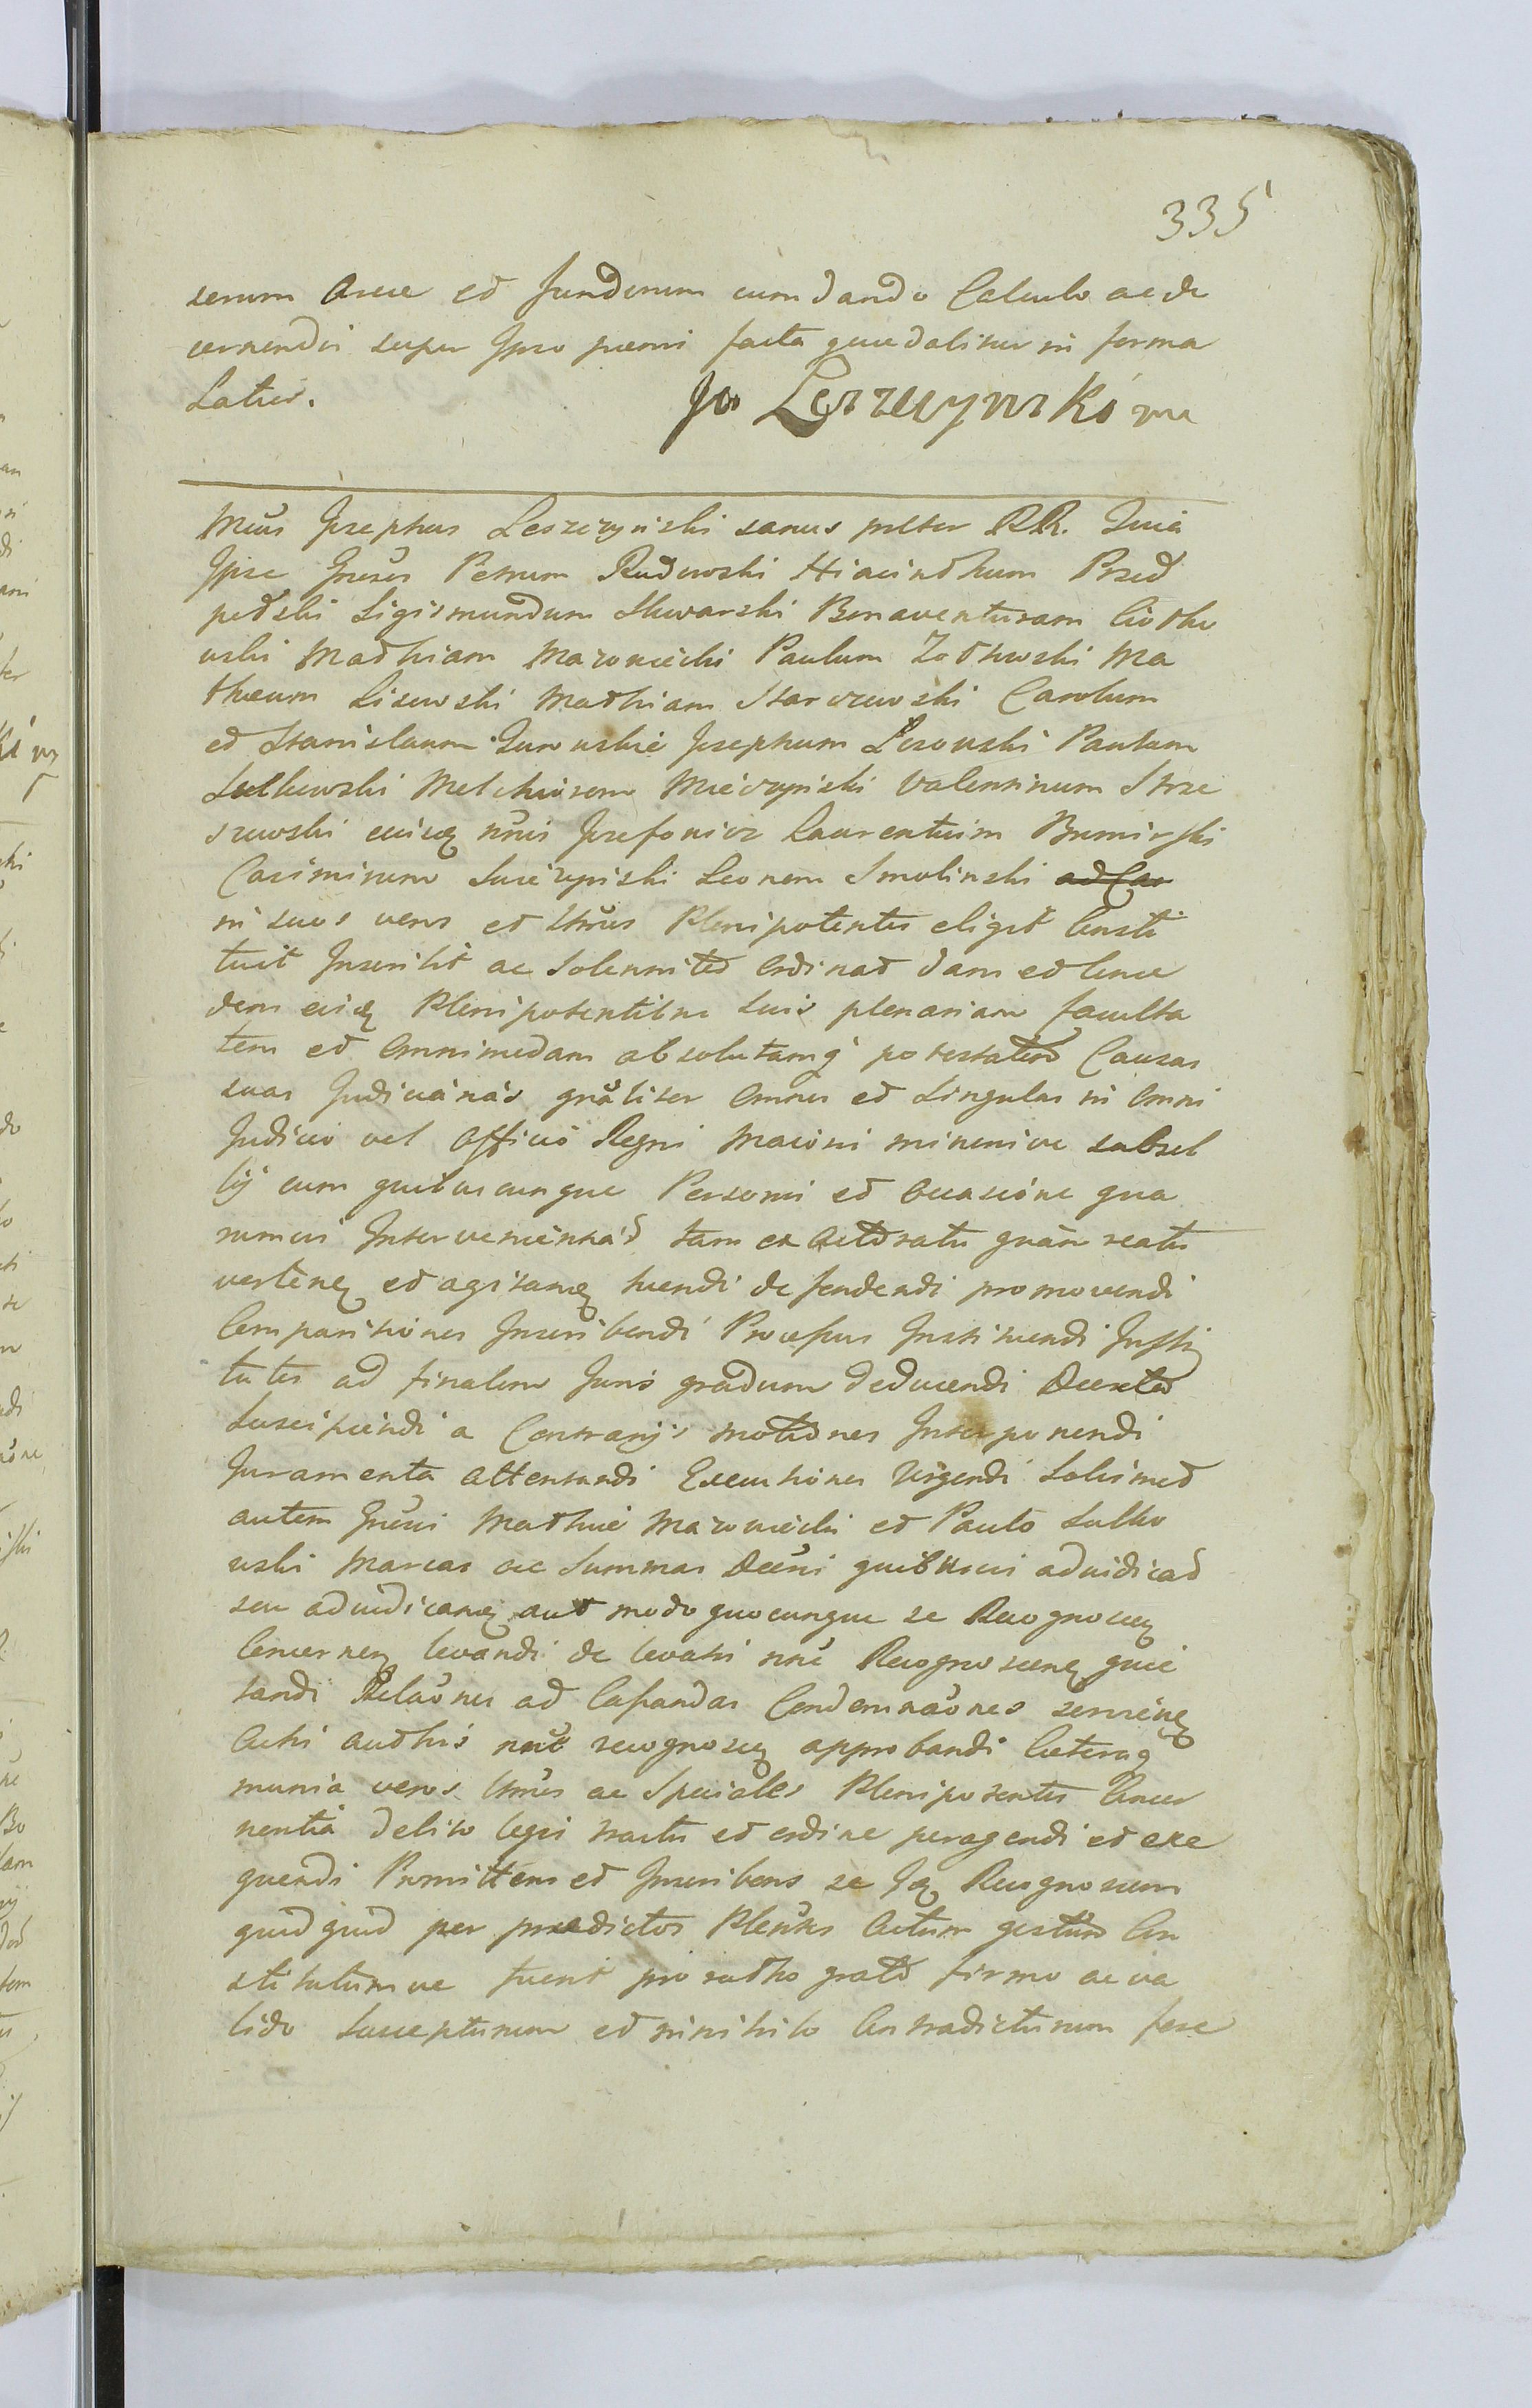 335
serum Ariae et fundorum eum dando Calculo ac de
cernendis super Ipso praemi facta quiedatiur in forma
Latiis.
Jos Leszczynski mp
Mcus Josephus Leszczynski sanus ptter RR. Quia
Ipse Gnesos Petrum Rudowski Hiacinthum Przed
petski Sigismundum Skwarski Bonaventuram Ciotko
wski Mathiam Mazowiecki Paulum Zotkowski Ma
thaeum Lisewski Mathiam Starczewski Carolum
et Stanislaum Gurowskie Josephum Losowski Paulum
Sulkowski Melchiorem Mieczynski Valentinum Strze
szewski eiusq nnis Josefowicz Laurentium Bromirski
Casimirum Swiezynski Leonem Smolinski
in suos veros et lttmos Plenipotentes eligit Consti
tuit Inscribit ac Solennited Ordinat dans et Conce
dens eisq Plenipotentibus suis plenariam faculta
tem et Omnimodam absolutamq potestatem Causas
suas Judiciarias gnaliter Omnes et Singulas in Omni
Judicio vel Officio Regni Maioris minorisve subsel
lij cum quibuscunque Personis et Occasione qua
rumvis Intervenientiad tam ex Actoratu quam reatu
vertenq et agitanq tuendi defendendi promovendi
Comparitiones Inscribendi Processus Instituendi Insti
tutos ad finalem Juris gradum deducendi Decreta
Suscipiendi a Contrarijs motiones Interponendi
Juramenta attentandi Executiones Urgendi Solummed
autem Gnesis Mathiae Mazowiecki et Paulo Sulko
wski Marcas ac Summas Decnis quibusvis adiudicad
seu adiudicanq aut modo quocunque se Recognoscen
Concernen levandi de levatis nne Recognoscenq quie
tandi Relaones ad Cassandas Condemnaones servienq
Actis authis nne recognoscen approbandi Caeteraq
munia veros lttmos ac Speciales Plenipotentes Concer
nentia debito legis tractu et ordine peragendi et exe
quendi Promittens et Inscribens se Iq Recognoscens
quidquid per praedictos Plentes Actum gestum Con
stitutumve fuerit pro ratho grato firmo ac va
lido Suscepturum et in nihilo Contradicturum fore